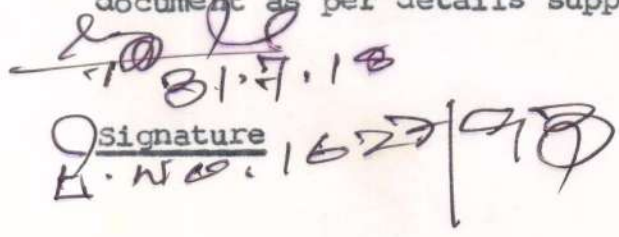 document as per details supp
31.7.18
Signature
H.NO.1627/93